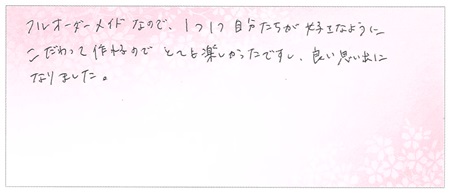 フルオーダーメイドなので、1つ1つ自分たちが好きなように
こだわって作れるので とても楽しかったですし、良い思い出に
なりました。